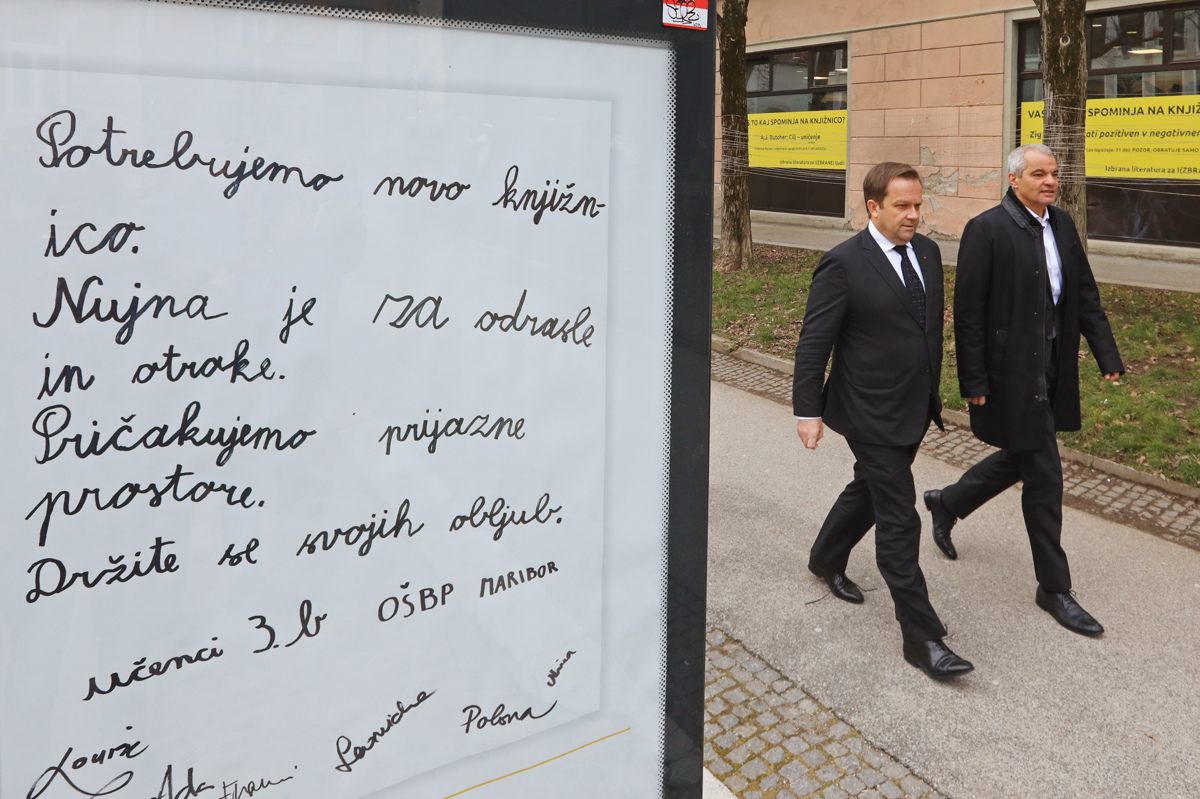 Potrebujemo novo knjižn-
ico.
Nujna je ZA odrasle
in otroke.
Pričakujemo prijazne
prostore.
Držite se svojih obljub.
učenci 3.b OŠBP MARIBOR
Polona
Ada
S TO KAJ SPOMINJA NA KNJIŽNICO?
A.J. Butcher: Cilj – uničenje
Izbrana literatura za I(ZBRANE) ljudi
VAS
SPOMINJA NA KNJIŽ
Zig
ati pozitiven v negativnem
POZOR, OBRATUJE SAMO
Izbrana literatura za I(ZBRA